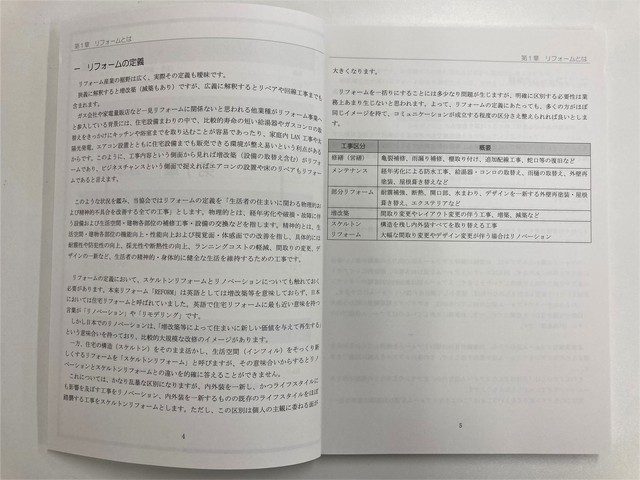 第1章 リフォームとは
一 リフォームの定義
リフォーム産業の裾野は広く、実際その定義も曖昧です。
狭義に解釈すると増改築（減築もあり）ですが、広義に解釈するとリペアや回線工事までも
含まれます。
ガス会社や家電量販店など一見リフォームに関係ないと思われる他業種がリフォーム事業へ
と参入している背景には、住宅設備まわりの中で、比較的寿命の短い給湯器やガスコンロの取
替えをきっかけにキッチンや浴室までを取り込むことが容易であったり、家庭内LAN工事や太
陽光発電、エアコン設置とともに住宅設備までも販売できる環境が整え易いという利点がある
からです。このように、工事内容という側面から見れば増改築（設備の取替え含む）がリフォ
ームであり、ビジネスチャンスという側面で捉えればエアコンの設置や床のリペアもリフォー
ムであると言えます。
このような状況を鑑み、当協会ではリフォームの定義を「生活者の住まいに関わる物理的お
よび精神的不具合を改善する全ての工事」とします。物理的とは、経年劣化や破損・故障に伴
う設備および生活空間・建物各部位の補修工事・設備の交換などを指します。精神的とは、生
活空間・建物各部位の機能向上・性能向上および視覚面・体感面での改善を指し、具体的には
耐震性や防犯性の向上、採光性や断熱性の向上、ランニングコストの軽減、間取りの変更、デ
ザインの一新など、生活者の精神的・身体的に健全な生活を維持するための工事です。
リフォームの定義において、スケルトンリフォームとリノベーションについても触れておく
必要があります。本来リフォーム「REFORM」は英語としては増改築等を意味しておらず、日本
においては住宅リフォームと呼ばれていました。英語で住宅リフォームに最も近い意味を持つ
言葉が「リノベーション」や「リモデリング」です。
しかし日本でのリノベーションは、「増改築等によって住まいに新しい価値を与えて再生する」
という意味合いを持っており、比較的大規模な改修のイメージがあります。
一方、住宅の構造（スケルトン）をそのまま活かし、生活空間（インフィル）をそっくり新
しくするリフォームを「スケルトンリフォーム」と呼びますが、その意味合いからするとリノ
ベーションとスケルトンリフォームとの違いを的確に答えることができません。
これについては、かなり乱暴な区別になりますが、内外装を一新し、かつライフスタイルに
も影響を及ぼす工事をリノベーション、内外装を一新するものの既存のライフスタイルをほぼ
踏襲する工事をスケルトンリフォームとします。ただし、この区別は個人の主観に委ねる面が
4
第1章 リフォームとは
大きくなります。
リフォームを一括りにすることには多少なり問題が生じますが、明確に区別する必要性は業
務上あまり生じないと思われます。よって、リフォームの定義にあたっても、多くの方がほぼ
同じイメージを持て、コミュニケーションが成立する程度の区分さえ整えられれば良いとしま
す。
工事区分 概要
修繕（営繕） 亀裂補修、雨漏り補修、棚取り付け、追加配線工事、蛇口等の復旧など
メンテナンス 経年劣化による防水工事、給湯器・コンロの取替え、雨樋の取替え、外壁再
塗装、屋根葺き替えなど
部分リフォーム 耐震補強、断熱、開口部、水まわり、デザインを一新する外壁再塗装・屋根
葺き替え、エクステリアなど
増改築 間取り変更やレイアウト変更の伴う工事、増築、減築など
スケルトン 構造を残し内外装すべてを取り替える工事
リフォーム 大幅な間取り変更やデザイン変更が伴う場合はリノベーション
5